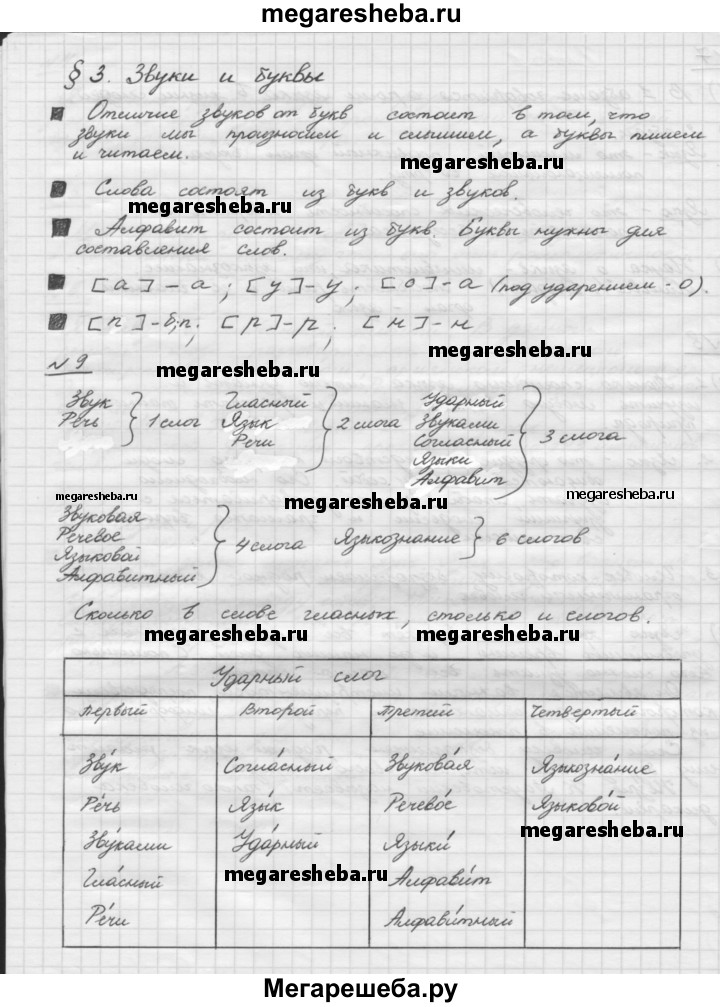 megaresheba.ru
§ 3. Звуки и буквы
Отличие звуков от букв состоит в том, что
звуки мы произносим и слышим, а буквы пишем
и читаем.
megaresheba.ru
Слова состоят из букв и звуков.
megaresheba.ru
Алфавит состоит из букв. Буквы нужны для
составления слов.
[а] - а ; [у] - у ; [о] - а (под ударением - о).
[п] - б; п. [р] - р. [н] - н
megaresheba.ru
№ 9
megaresheba.ru
Звук
Речь
} 1 слог
Гласный
Язык
Речи
} 2 слога
Ударный
Звуками
Согласный
Языки
Алфавит
} 3 слога
megaresheba.ru megaresheba.ru megaresheba.ru
Звуковая
Речевое
Языковой
Алфавитный
} 4 слога
Языкознание } 6 слогов
Сколько в слове гласных, столько и слогов.
megaresheba.ru megaresheba.ru
Ударный слог
Первый Второй Третий Четвертый
Зву́к Согла́сный Звукова́я Языкозна́ние
Ре́чь Язы́к Речево́е Языково́й
Зву́ками Уда́рный Языки́ megaresheba.ru
Гла́сный megaresheba.ru Алфави́т
Ре́чи Алфави́тный
Мегарешеба.ру